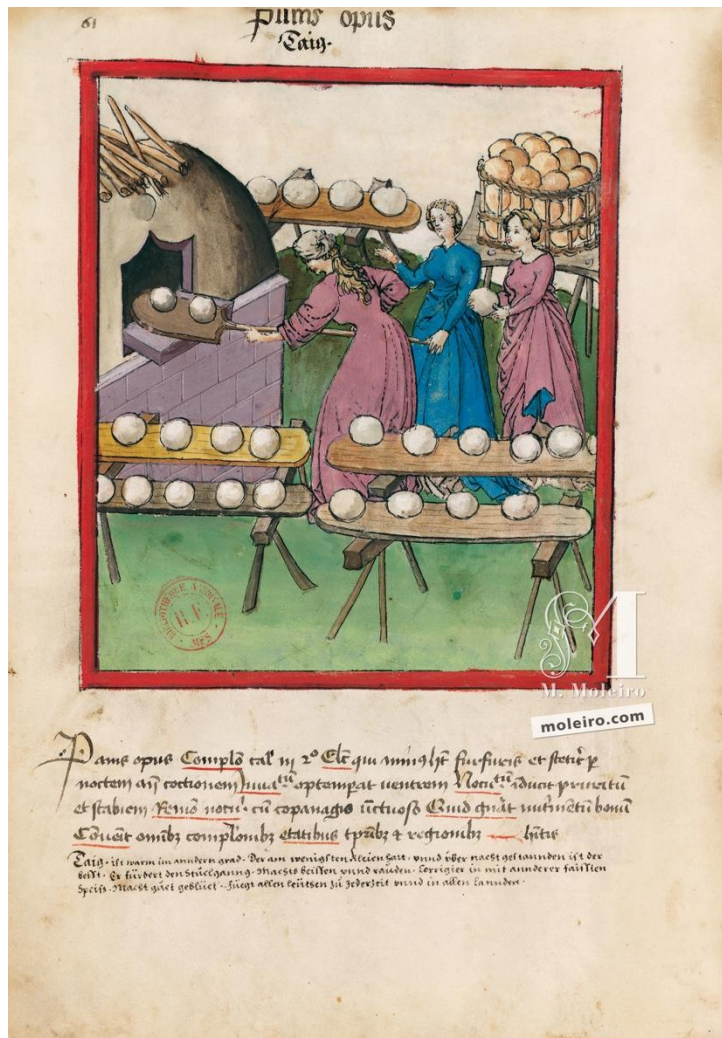 61
Panis opus
Taig.
BIBLIOTHEQUE NATIONALE
R.F.
MSS
M
M. Moleiro
moleiro.com
Panis opus Complō cal' in 2º Elc̄ qui minꝰ hꝫ furfuris et stetit ꝑ
noctem añ coctionem Iuua᷒tū optemperat uentrem Nocu᷒tū iducit pruritū
et scabiem Remō nocu᷒ cū copanagio ūctuoso Quid gnāt nutrimētū bonū
Cōueīt omībꝫ complōnibꝫ etatibus tpribꝫ et regionibꝫ hntis
Taig. ist warm im anndern grad. Der am wenigsten kleien hatt. vnnd vber nacht gestannden ist der
besst. Er fürdert den Stuelganng. Machts beissen vnnd rauden. Corrigier in mit annderer faissten
Speiss. Macht guet geblüet. Fuegt allen leutsen zu Jederzeit vnnd in allen lannden.